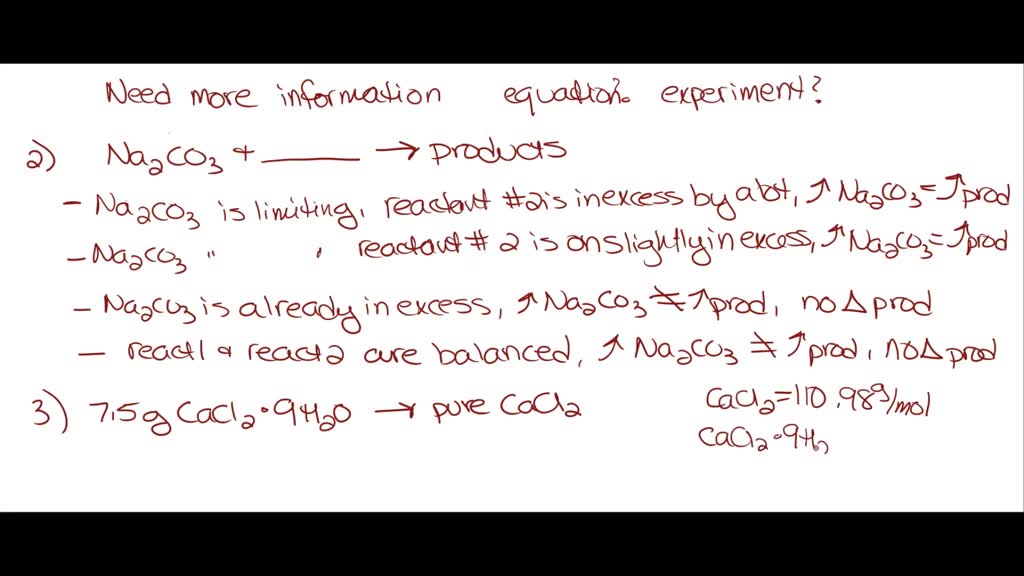 Need more information equation? experiment?
2) Na₂CO₃ + ______ → products
- Na₂CO₃ is limiting, reactant #2 is in excess by a lot, ↑ Na₂CO₃ = ↑ prod
- Na₂CO₃ " , reactant # 2 is on slightly in excess, ↑ Na₂CO₃ = ↑ prod
- Na₂CO₃ is already in excess, ↑ Na₂CO₃ ≠ ↑ prod, no Δ prod
- react1 & react2 are balanced, ↑ Na₂CO₃ ≠ ↑ prod, no Δ prod
3) 7.5g CaCl₂·9H₂O → pure CaCl₂ CaCl₂ = 110.98g/mol
CaCl₂·9H₂